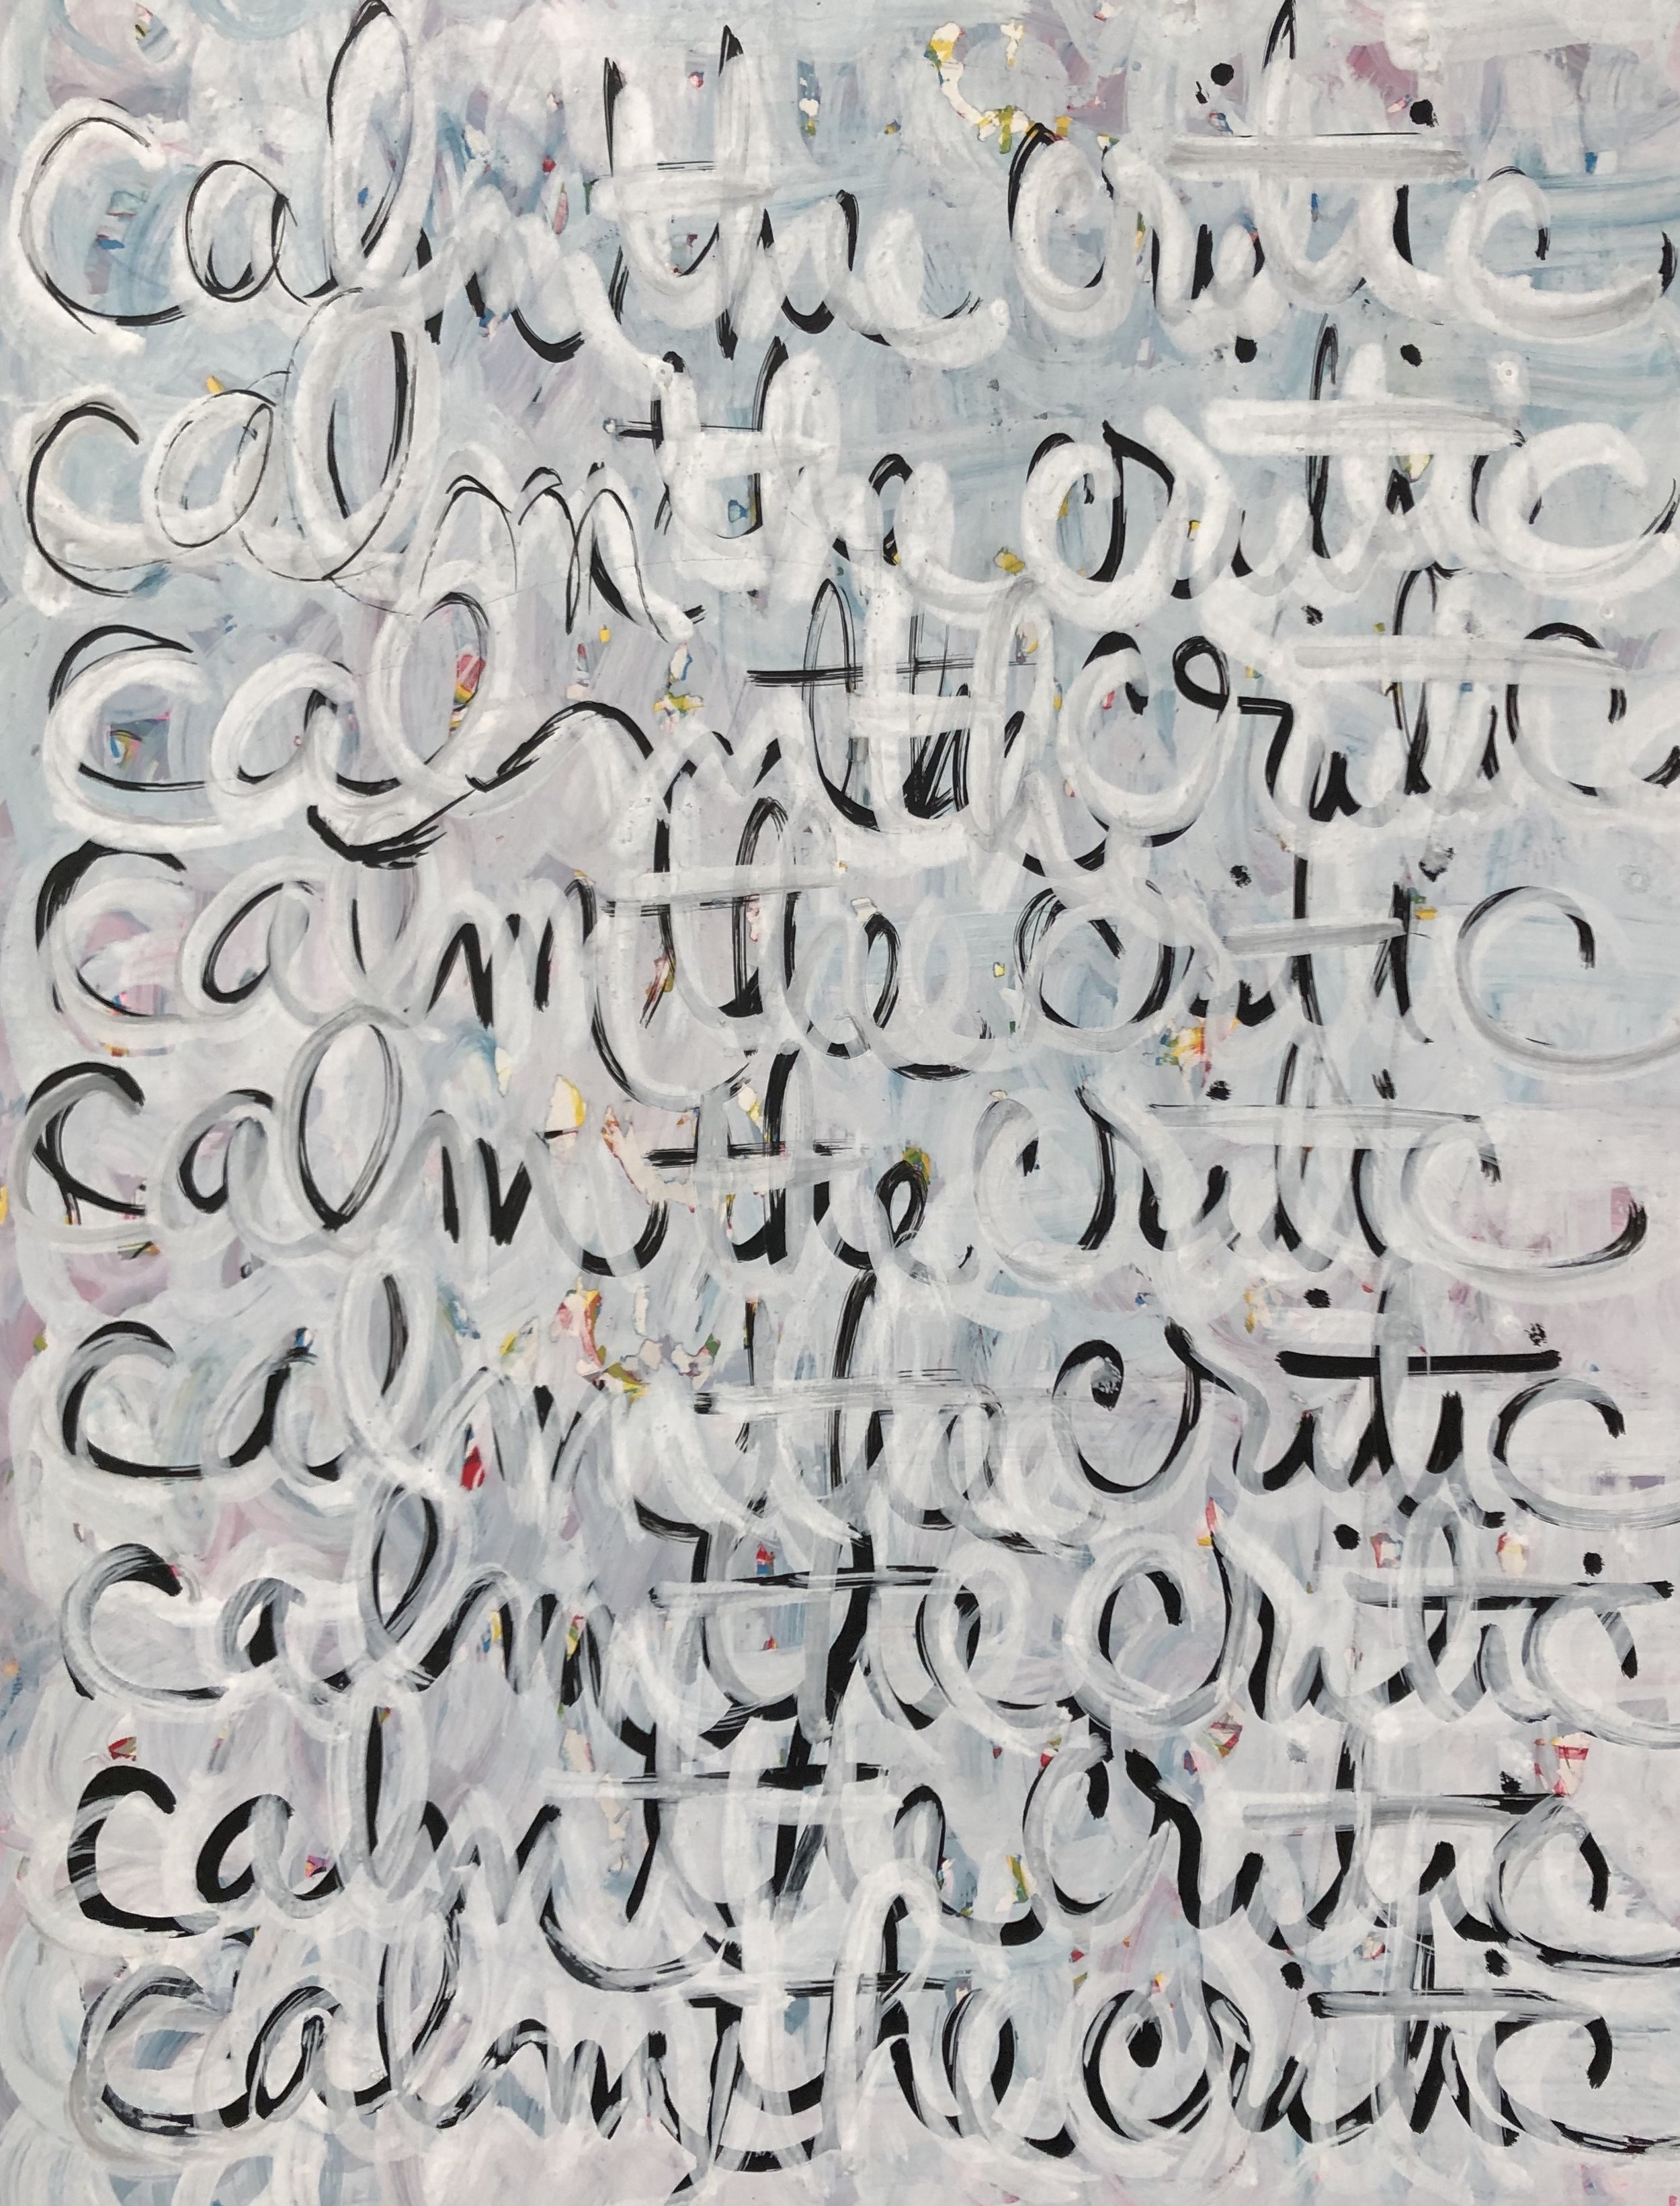 calm the critic
calm the critic
calm the critic
calm the critic
calm the critic
calm the critic
calm the critic
calm the critic
calm the critic